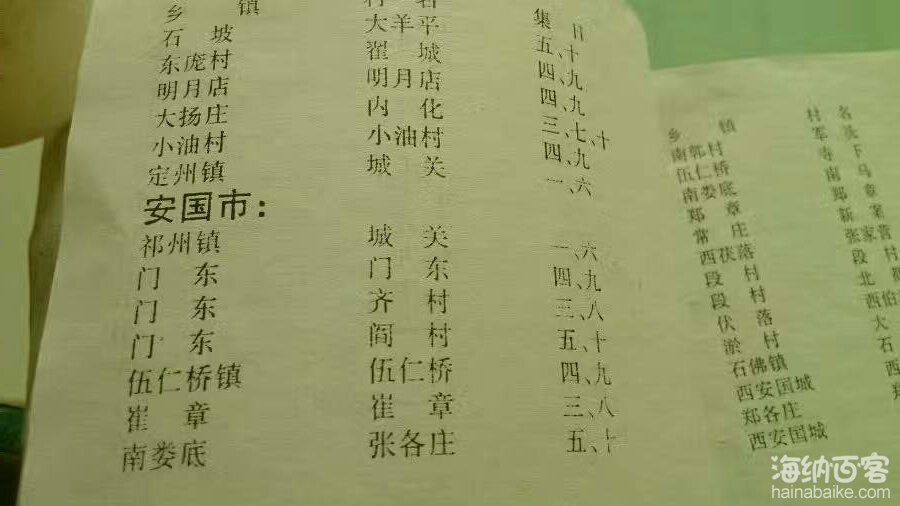 乡 镇 村 名 集 日
石 坡 大羊平 五、十
东庞村 翟 城 四、九
明月店 明月店 四、九
大扬庄 内 化 三、七、十
小油村 小油村 四、九
定州镇 城 关 一、六
安国市：
祁州镇 城 关 一、六
门 东 门 东 四、九
门 东 齐 村 三、八
门 东 阎 村 五、十
伍仁桥镇 伍仁桥 四、九
崔 章 崔 章 三、八
南娄底 张各庄 五、十
乡 镇 村 名
南郭村 军
伍仁桥 寺 下
南娄底 南 马
郑 章 郑 章
常 庄 新
西茯落 张家营
段 村 段 村
段 村 北
伏 落 西伯
淤 村 大
石佛镇 石
西安国城 西
郑各庄 郑
西安国城
海纳百客
hainabaike.com